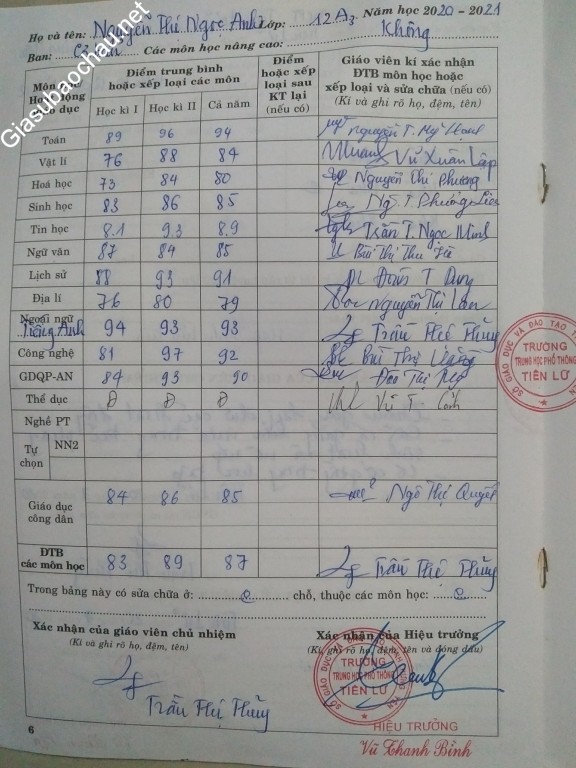 Họ và tên: Nguyễn Thị Ngọc Ánh Lớp: 12A3 Năm học 2020 - 2021
Ban: Cơ bản Các môn học nâng cao: Không
Giasubaochau.net
Môn học/ Hoạt động giáo dục
Điểm trung bình hoặc xếp loại các môn
Điểm hoặc xếp loại sau KT lại (nếu có)
Giáo viên kí xác nhận ĐTB môn học hoặc xếp loại và sửa chữa (nếu có)
(Kí và ghi rõ họ, đệm, tên)
Học kì I Học kì II Cả năm
Toán 89 96 94 Nguyễn T. Mỹ
Vật lí 76 88 84 Vũ Xuân Lập
Hoá học 73 84 80 Nguyễn Thị Phương
Sinh học 83 86 85 Ng. T. Phương
Tin học 8.1 93 8.9 Trần T. Ngọc Minh
Ngữ văn 87 84 85 Bùi Thị Thu
Lịch sử 88 93 91 T
Địa lí 76 80 79 Nguyễn Thị Lan
Ngoại ngữ Tiếng Anh 94 93 93 Trần Thị Thủy
Công nghệ 81 97 92 Bùi Thị
GDQP-AN 84 93 90 Thị
Thể dục Đ Đ Đ Vũ T.
Nghề PT
Tự chọn NN2
Giáo dục công dân 84 86 85 Ngô Thị Quyết
ĐTB các môn học 83 89 87 Trần Thị Thủy
Trong bảng này có sửa chữa ở: 0 chỗ, thuộc các môn học: 0
Xác nhận của giáo viên chủ nhiệm
(Kí và ghi rõ họ, đệm, tên)
Trần Thị Thủy
Xác nhận của Hiệu trưởng
(Kí, ghi rõ họ, đệm, tên và đóng dấu)
TRƯỜNG
TRUNG HỌC PHỔ THÔNG
TIÊN LỮ
HIỆU TRƯỞNG
Vũ Thanh Bình
SỞ GIÁO DỤC VÀ ĐÀO TẠO
TRƯỜNG
TRUNG HỌC PHỔ THÔNG
TIÊN LỮ
6